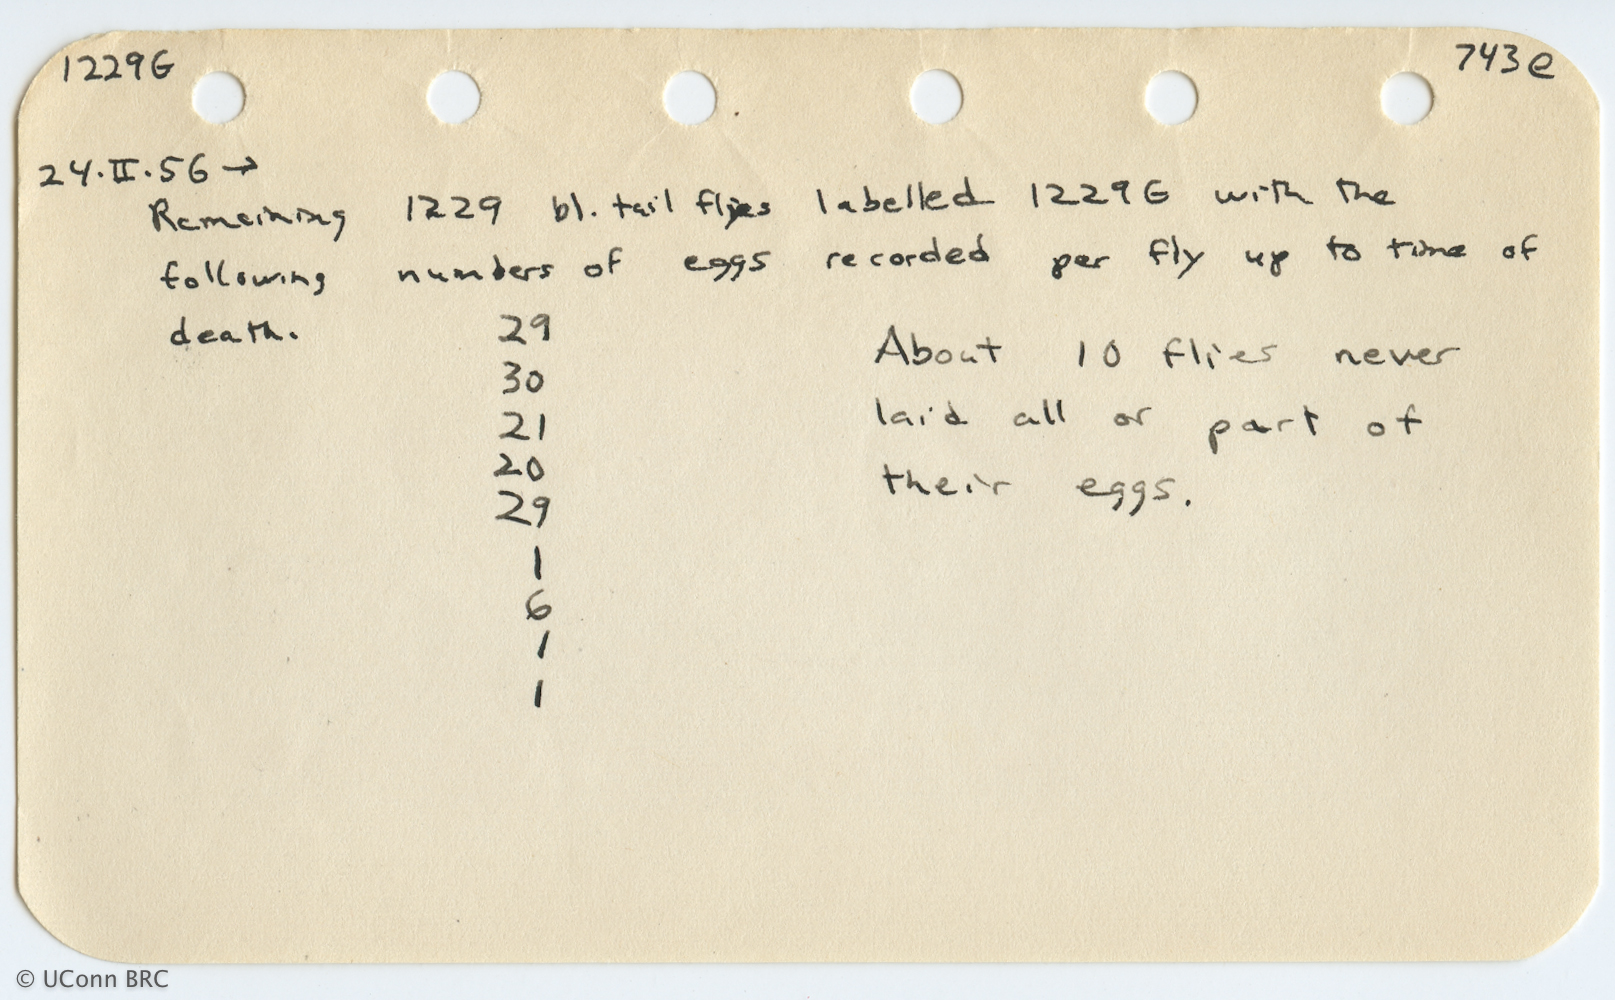 1229G
743e
24.II.56 →
Remaining 1229 bl. tail flies labelled 1229G with the
following numbers of eggs recorded per fly up to time of
death.
29
30
21
20
29
1
6
1
1
About 10 flies never
laid all or part of
their eggs.
© UConn BRC